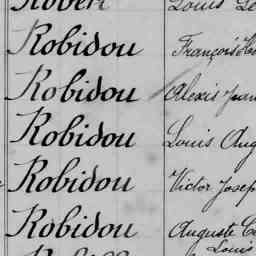 Robert Louis
Robidou François
Robidou Alexis Jean
Robidou Louis Aug
Robidou Victor Josep
Robidou Auguste
Louis